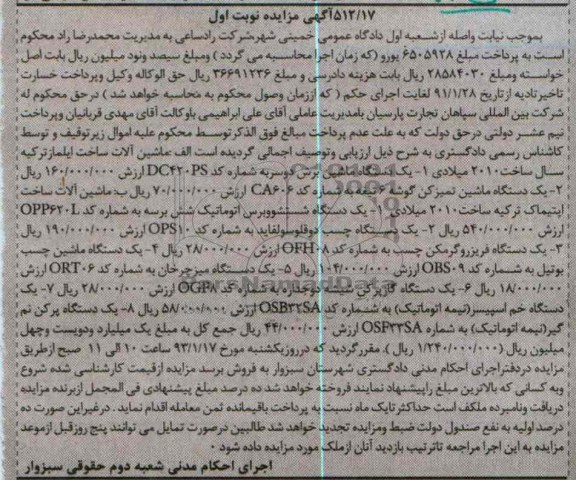 ۵۱۲/۱۷آگهی مزایده نوبت اول
بموجب نیابت واصله ازشعبه اول دادگاه عمومی خمینی شهر،شرکت رادساعی به مدیریت محمدرضا راد محکوم
است به پرداخت مبلغ ۶۵۰۵۹۲۸ یورو (که زمان اجرا محاسبه می گردد ) ومبلغ سیصد ونود میلیون ریال بابت اصل
خواسته ومبلغ ۲۸۵۸۴۰۳۰ ریال بابت هزینه دادرسی و مبلغ ۳۶۶۹۱۲۳۶ ریال حق الوکاله وکیل وپرداخت خسارت
تاخیرتادیه از تاریخ ۹۱/۱/۲۸ لغایت اجرای حکم ( که اززمان وصول محکوم به محاسبه خواهد شد ) درحق محکوم له
شرکت بین المللی سپاهان تجارت پارسیان بامدیریت عاملی آقای علی ابراهیمی باوکالت آقای مهدی قربانیان وپرداخت
نیم عشر دولتی درحق دولت که به علت عدم پرداخت مبالغ فوق الذکرتوسط محکوم علیه اموال زیرتوقیف و توسط
کاشناس رسمی دادگستری به شرح ذیل ارزیابی وتوصیف اجمالی گردیده است الف :ماشین آلات ساخت ایلمازترکیه
سال ساخت۲۰۱۰ میلادی ۱- یک دستگاه ماشین برش دوسربه شماره کد DC۴۲۰PS ارزش ۱۶۰/۰۰۰/۰۰۰ ریال
۲- یک دستگاه ماشین تمیزکن گوشه شماره کد CA۶۰۶ ارزش ۷۰/۰۰۰/۰۰۰ ریال ب:ماشین آلات ساخت
اپتیماک ترکیه ساخت۲۰۱۰ میلادی ۱- یک دستگاه شستشووبرس اتوماتیک شش برسه به شماره کد OPP۶۲۰L
ارزش ۵۴۰/۰۰۰/۰۰۰ ریال ۲- یک دستگاه چسب دوقلوسولفاید به شماره کد OPS۱۰ ارزش ۱۹۰/۰۰۰/۰۰۰ ریال
۳- یک دستگاه فریزروگرمکن چسب به شماره کد OFH۰۸ ارزش ۲۸/۰۰۰/۰۰۰ ریال ۴- یک دستگاه ماشین چسب
بوتیل به شماره کد OBS۰۹ ارزش ۱۰۴/۰۰۰/۰۰۰ ریال ۵- یک دستگاه میزچرخان به شماره کد ORT۰۶ ارزش
۱۸/۰۰۰/۰۰۰ ریال ۶- یک دستگاه گازپرکن شیشه دوجداره شماره کد OGF۸ ارزش ۲۸/۰۰۰/۰۰۰ ریال ۷- یک
دستگاه خم اسپیسر(نیمه اتوماتیک) به شماره کد OSB۳۲SA ارزش ۵۸/۰۰۰/۰۰۰ ریال ۸- یک دستگاه پرکن نم
گیر(نیمه اتوماتیک) به شماره OSF۳۳SA ارزش ۴۴/۰۰۰/۰۰۰ ریال جمع کل به مبلغ یک میلیارد ودویست وچهل
میلیون ریال (۱/۲۴۰/۰۰۰/۰۰۰ ریال ). مقررگردید که درروزیکشنبه مورخ ۹۳/۱/۱۷ ساعت ۱۰ الی ۱۱ صبح ازطریق
مزایده دردفتراجرای احکام مدنی دادگستری شهرستان سبزوار به فروش برسد مزایده ازقیمت کارشناسی شده شروع
وبه کسانی که بالاترین مبلغ راپیشنهاد نمایند فروخته خواهد شد ده درصد مبلغ پیشنهادی فی المجمل ازبرنده مزایده
دریافت ونامبرده ملکف است حداکثرتایک ماه نسبت به پرداخت باقیمانده ثمن معامله اقدام نماید . درغیراین صورت ده
درصد اولیه به نفع صندول دولت ضبط ومزایده تجدید خواهد شد طالبین درصورت تمایل می توانند پنج روز قبل ازموعد
مزایده به این اجرا مراجعه تاترتیب بازدید آنان ازملک مورد مزایده داده شود ۰
اجرای احکام مدنی شعبه دوم حقوقی سبزوار